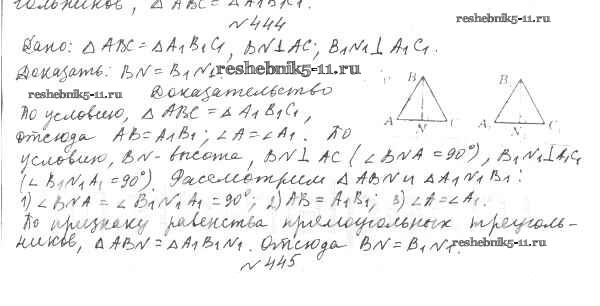 гольников, △ ABC = △ A1B1C1.
№444
reshebnik5-11.ru
Дано: △ ABC = △ A1B1C1, BN⊥AC; B1N1⊥ A1C1.
Доказать: BN = B1N1.
reshebnik5-11.ru
reshebnik5-11.ru
Доказательство
По условию, △ ABC = △ A1B1C1,
отсюда AB = A1B1; ∠A = ∠A1. По
B
A
N
C
B
A1
N1
C1
условию, BN - высота, BN⊥ AC (∠BNA = 90°), B1N1⊥A1C1
(∠B1N1A1 = 90°). Рассмотрим △ ABN и △ A1N1B1:
1) ∠BNA = ∠B1N1A1 = 90°; 2) AB = A1B1; 3) ∠A = ∠A1.
По признаку равенства прямоугольных треуголь-
ников, △ ABN = △ A1B1N1. Отсюда BN = B1N1.
reshebnik5-11.ru
№445